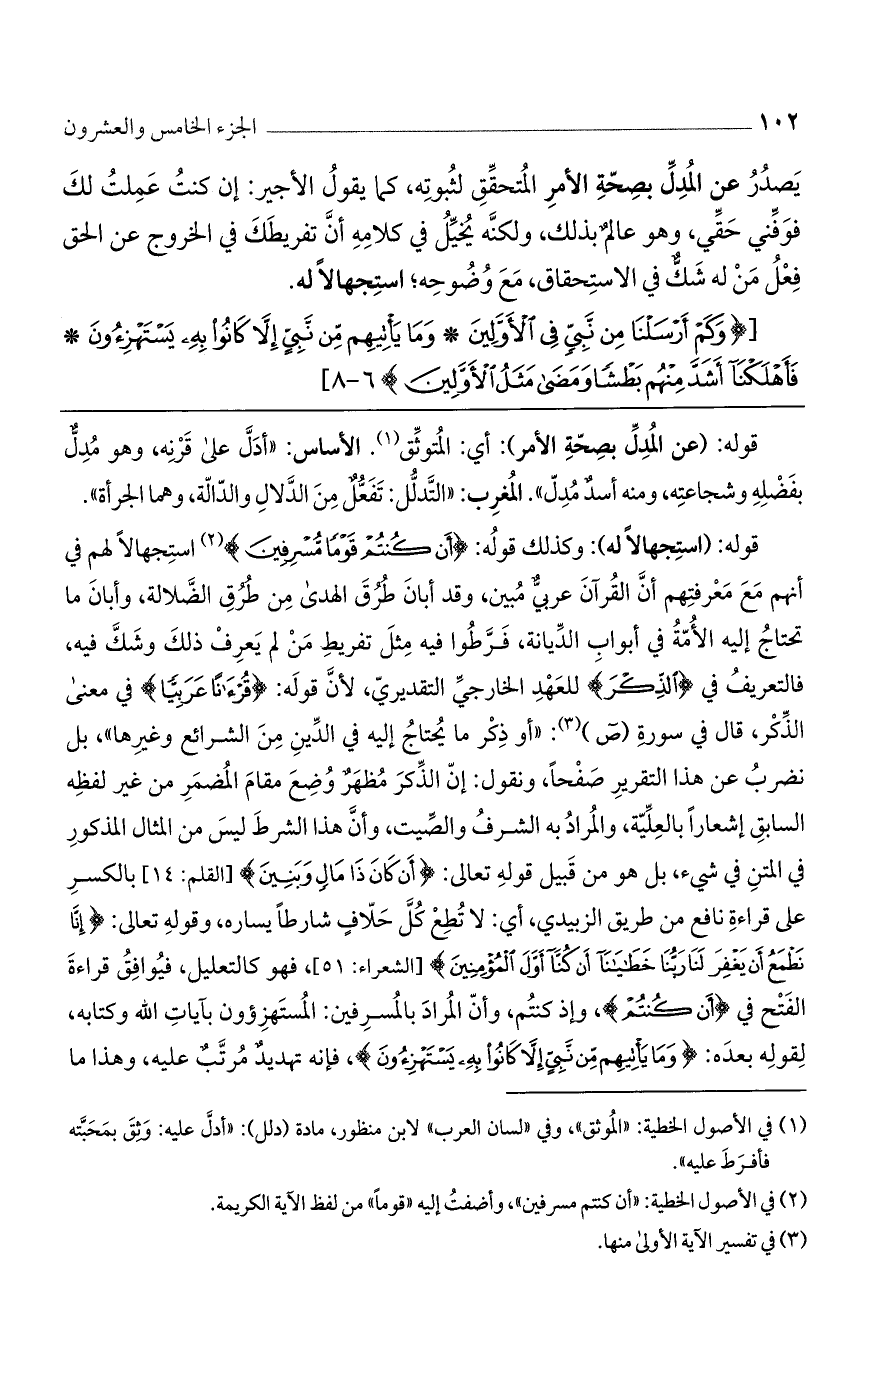 ١٠٢ ــــــــــــــــــــــــــــــــــــــــ الجزء الخامس والعشرون
يَصدُرُ عن المُدِلِّ بصِحّةِ الأمرِ المُتحقِّقِ لثُبوتِه، كما يقولُ الأجير: إن كنتُ عَمِلتُ لكَ
فوَفِّني حَقِّي، وهو عالمٌ بذلك، ولكنَّه يُخيِّلُ في كلامِهِ أنَّ تفريطَكَ في الخروج عن الحق
فِعْلُ مَنْ له شَكٌّ في الاستِحقاق، مَعَ وُضُوحِه؛ استِجهالاً له.
[﴿وَكَمْ أَرْسَلْنَا مِن نَّبِيٍّ فِى ٱلْأَوَّلِينَ * وَمَا يَأْتِيهِم مِّن نَّبِىٍّ إِلَّا كَانُوا۟ بِهِۦ يَسْتَهْزِءُونَ *
فَأَهْلَكْنَآ أَشَدَّ مِنْهُم بَطْشًا وَمَضَىٰ مَثَلُ ٱلْأَوَّلِينَ﴾ ٦-٨]
قوله: (عن المُدِلِّ بصِحّةِ الأمر): أي: المُتوثِّق(١). الأساس: «أدَلَّ علىٰ قَرْنِه، وهو مُدِلٌّ
بفَضْلِهِ وشجاعتِه، ومنه أسدٌ مُدِلّ». المُغرِب: «التَّدلُّل: تَفَعُّلٌ مِنَ الدَّلالِ والدّالّة، وهما الجرأة».
قوله: (استِجهالاً له): وكذلك قولُه: ﴿أَن كُنتُمْ قَوْمًا مُّسْرِفِينَ﴾(٢) استِجهالاً لهم في
أنهم مَعَ مَعْرفتِهم أنَّ القُرآنَ عربيٌّ مُبين، وقد أبانَ طُرُقَ الهدىٰ مِن طُرُقِ الضَّلالة، وأبانَ ما
تحتاجُ إليه الأُمّةُ في أبوابِ الدِّيانة، فَـرَّطُوا فيه مِثلَ تفريطِ مَنْ لم يَعرِفْ ذلكَ وشَكَّ فيه،
فالتعريفُ في ﴿ٱلذِّكْرَ﴾ للعَهْدِ الخارجيِّ التقديريّ، لأنَّ قولَه: ﴿قُرْءَٰنًا عَرَبِيًّا﴾ في معنىٰ
الذِّكْر، قال في سورةِ (صٓ)(٣): «أو ذِكْر ما يُحتاجُ إليه في الدِّينِ مِنَ الشـرائع وغيرِها»، بل
نضربُ عن هذا التقريرِ صَفْحاً، ونقول: إنّ الذِّكرَ مُظهَرٌ وُضِعَ مقامَ المُضمَرِ من غير لفظِه
السابقِ إشعاراً بالعِلِّيّة، والمُرادُ به الشـرفُ والصِّيت، وأنَّ هذا الشرطَ ليسَ من المثال المذكورِ
في المتنِ في شيء، بل هو من قَبيل قولهِ تعالى: ﴿أَن كَانَ ذَا مَالٍ وَبَنِينَ﴾ [القلم: ١٤] بالكسـرِ
على قراءةِ نافع من طريق الزبيدي، أي: لا تُطِعْ كُلَّ حَلّافٍ شارطاً يساره، وقولهِ تعالى: ﴿إِنَّا
نَطْمَعُ أَن يَغْفِرَ لَنَا رَبُّنَا خَطَٰيَٰنَآ أَن كُنَّآ أَوَّلَ ٱلْمُؤْمِنِينَ﴾ [الشعراء: ٥١]، فهو كالتعليل، فيُوافِقُ قراءةَ
الفَتْح في ﴿أَن كُنتُمْ﴾، وإذ كنتُم، وأنّ المُرادَ بالمُسـرِفين: المُستَهزِؤون بآياتِ الله وكتابه،
لِقولِه بعدَه: ﴿وَمَا يَأْتِيهِم مِّن نَّبِىٍّ إِلَّا كَانُوا۟ بِهِۦ يَسْتَهْزِءُونَ﴾، فإنه تهديدٌ مُرتَّبٌ عليه، وهذا ما
(١) في الأصول الخطية: «المُوثق»، وفي «لسان العرب» لابن منظور، مادة (دلل): «أدلَّ عليه: وَثِقَ بمَحَبَّته
فأفـرَطَ عليه».
(٢) في الأصول الخطية: «أن كنتم مسرفين»، وأضفتُ إليه «قوماً» من لفظ الآية الكريمة.
(٣) في تفسير الآية الأولىٰ منها.